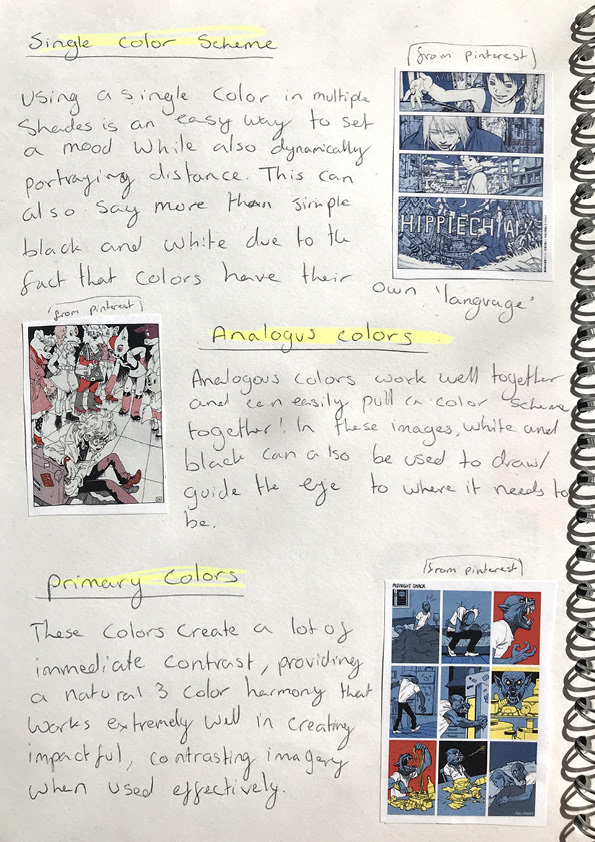 Single Color Scheme
(from pinterest)
Using a single color in multiple
Shades is an easy way to set
a mood while also dynamically
portraying distance. This can
also say more than simple
black and white due to the
fact that colors have their own 'language'
HIPPIECHIA
(from pinterest)
Analogus colors
Analogous colors work well together
and can easily pull a color scheme
together! In these images, white and
black can also be used to draw/
guide the eye to where it needs to
be.
Primary Colors
(from pinterest)
MIDNIGHT SNACK
These colors create a lot of
immediate contrast, providing
a natural 3 color harmony that
works extremely well in creating
impactful, contrasting imagery
when used effectively.